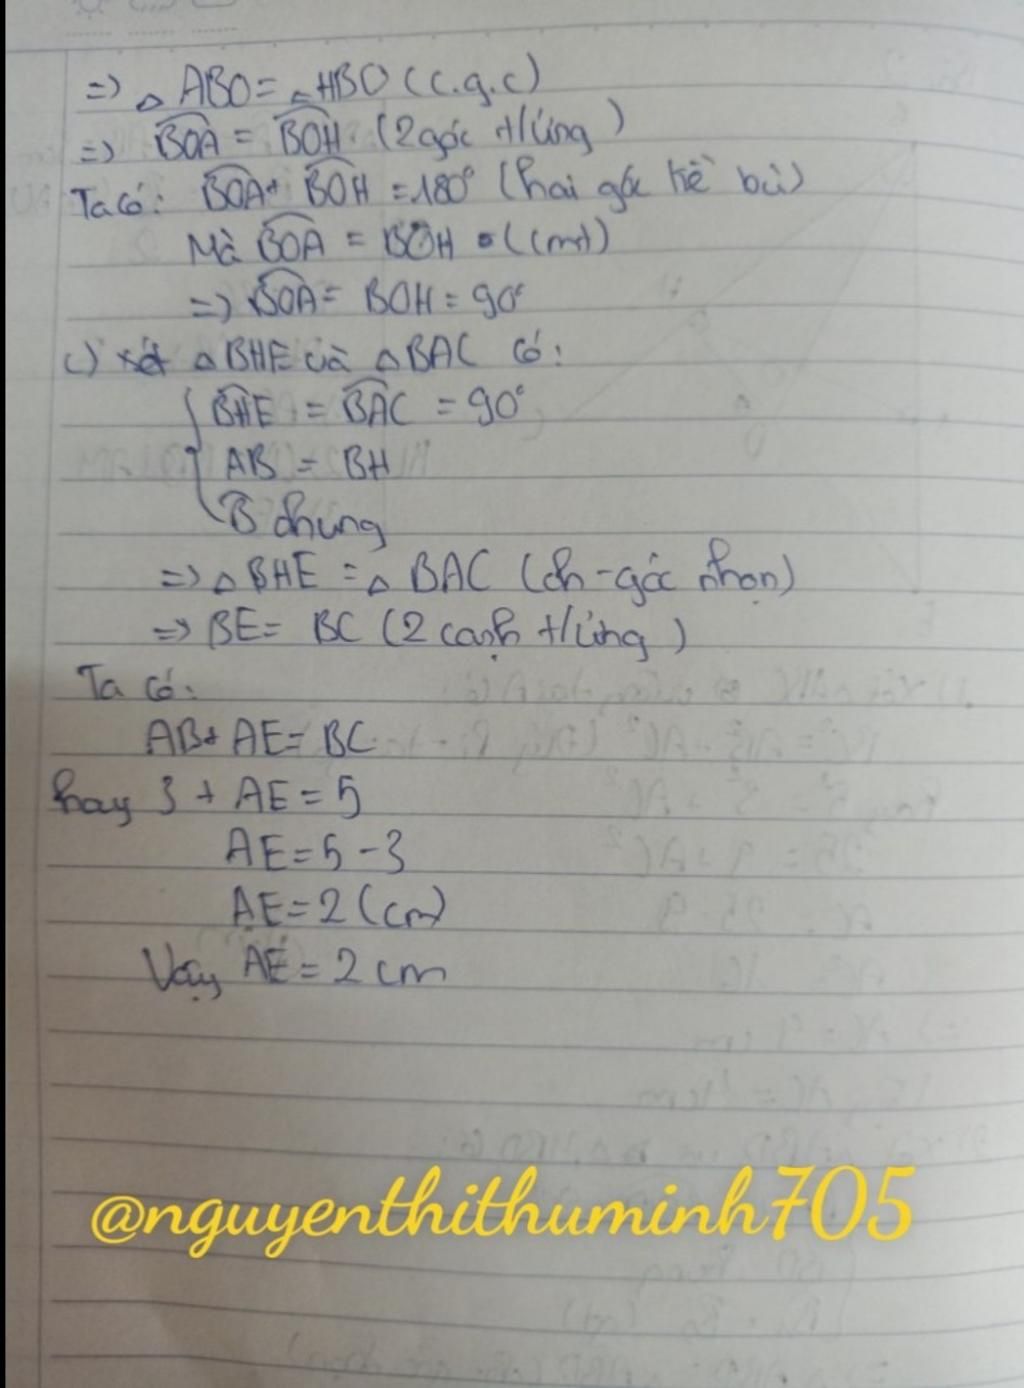 => △ ABO = △ HBO (c.g.c)
=> BOA = BOH (2 góc t/ứng)
Ta có: BOA + BOH = 180° (hai góc kề bù)
Mà BOA = BOH (cmt)
=> BOA = BOH = 90°
c) xét △ BHE và △ BAC có:
BHE = BAC = 90°
AB = BH
B chung
=> △ BHE = △ BAC (ch - góc nhọn)
=> BE = BC (2 cạnh t/ứng)
Ta có:
AB + AE = BC
hay 3 + AE = 5
AE = 5 - 3
AE = 2 (cm)
Vậy AE = 2 cm
@nguyenthithuminh705